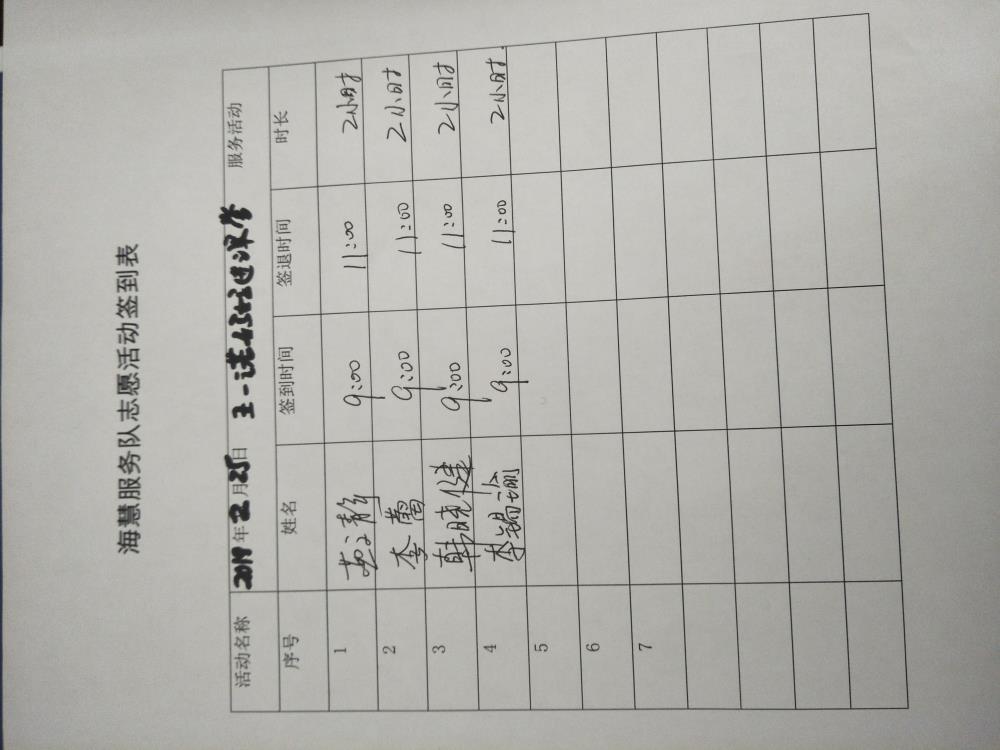 海慧服务队志愿活动签到表
活动名称 2019年2月25日 服务活动
序号 姓名 签到时间 签退时间 时长
1 9:00 11:00 2小时
2 李 9:00 11:00 2小时
3 韩晓健 9:00 11:00 2小时
4 李锡瑜 9:00 11:00 2小时
5
6
7